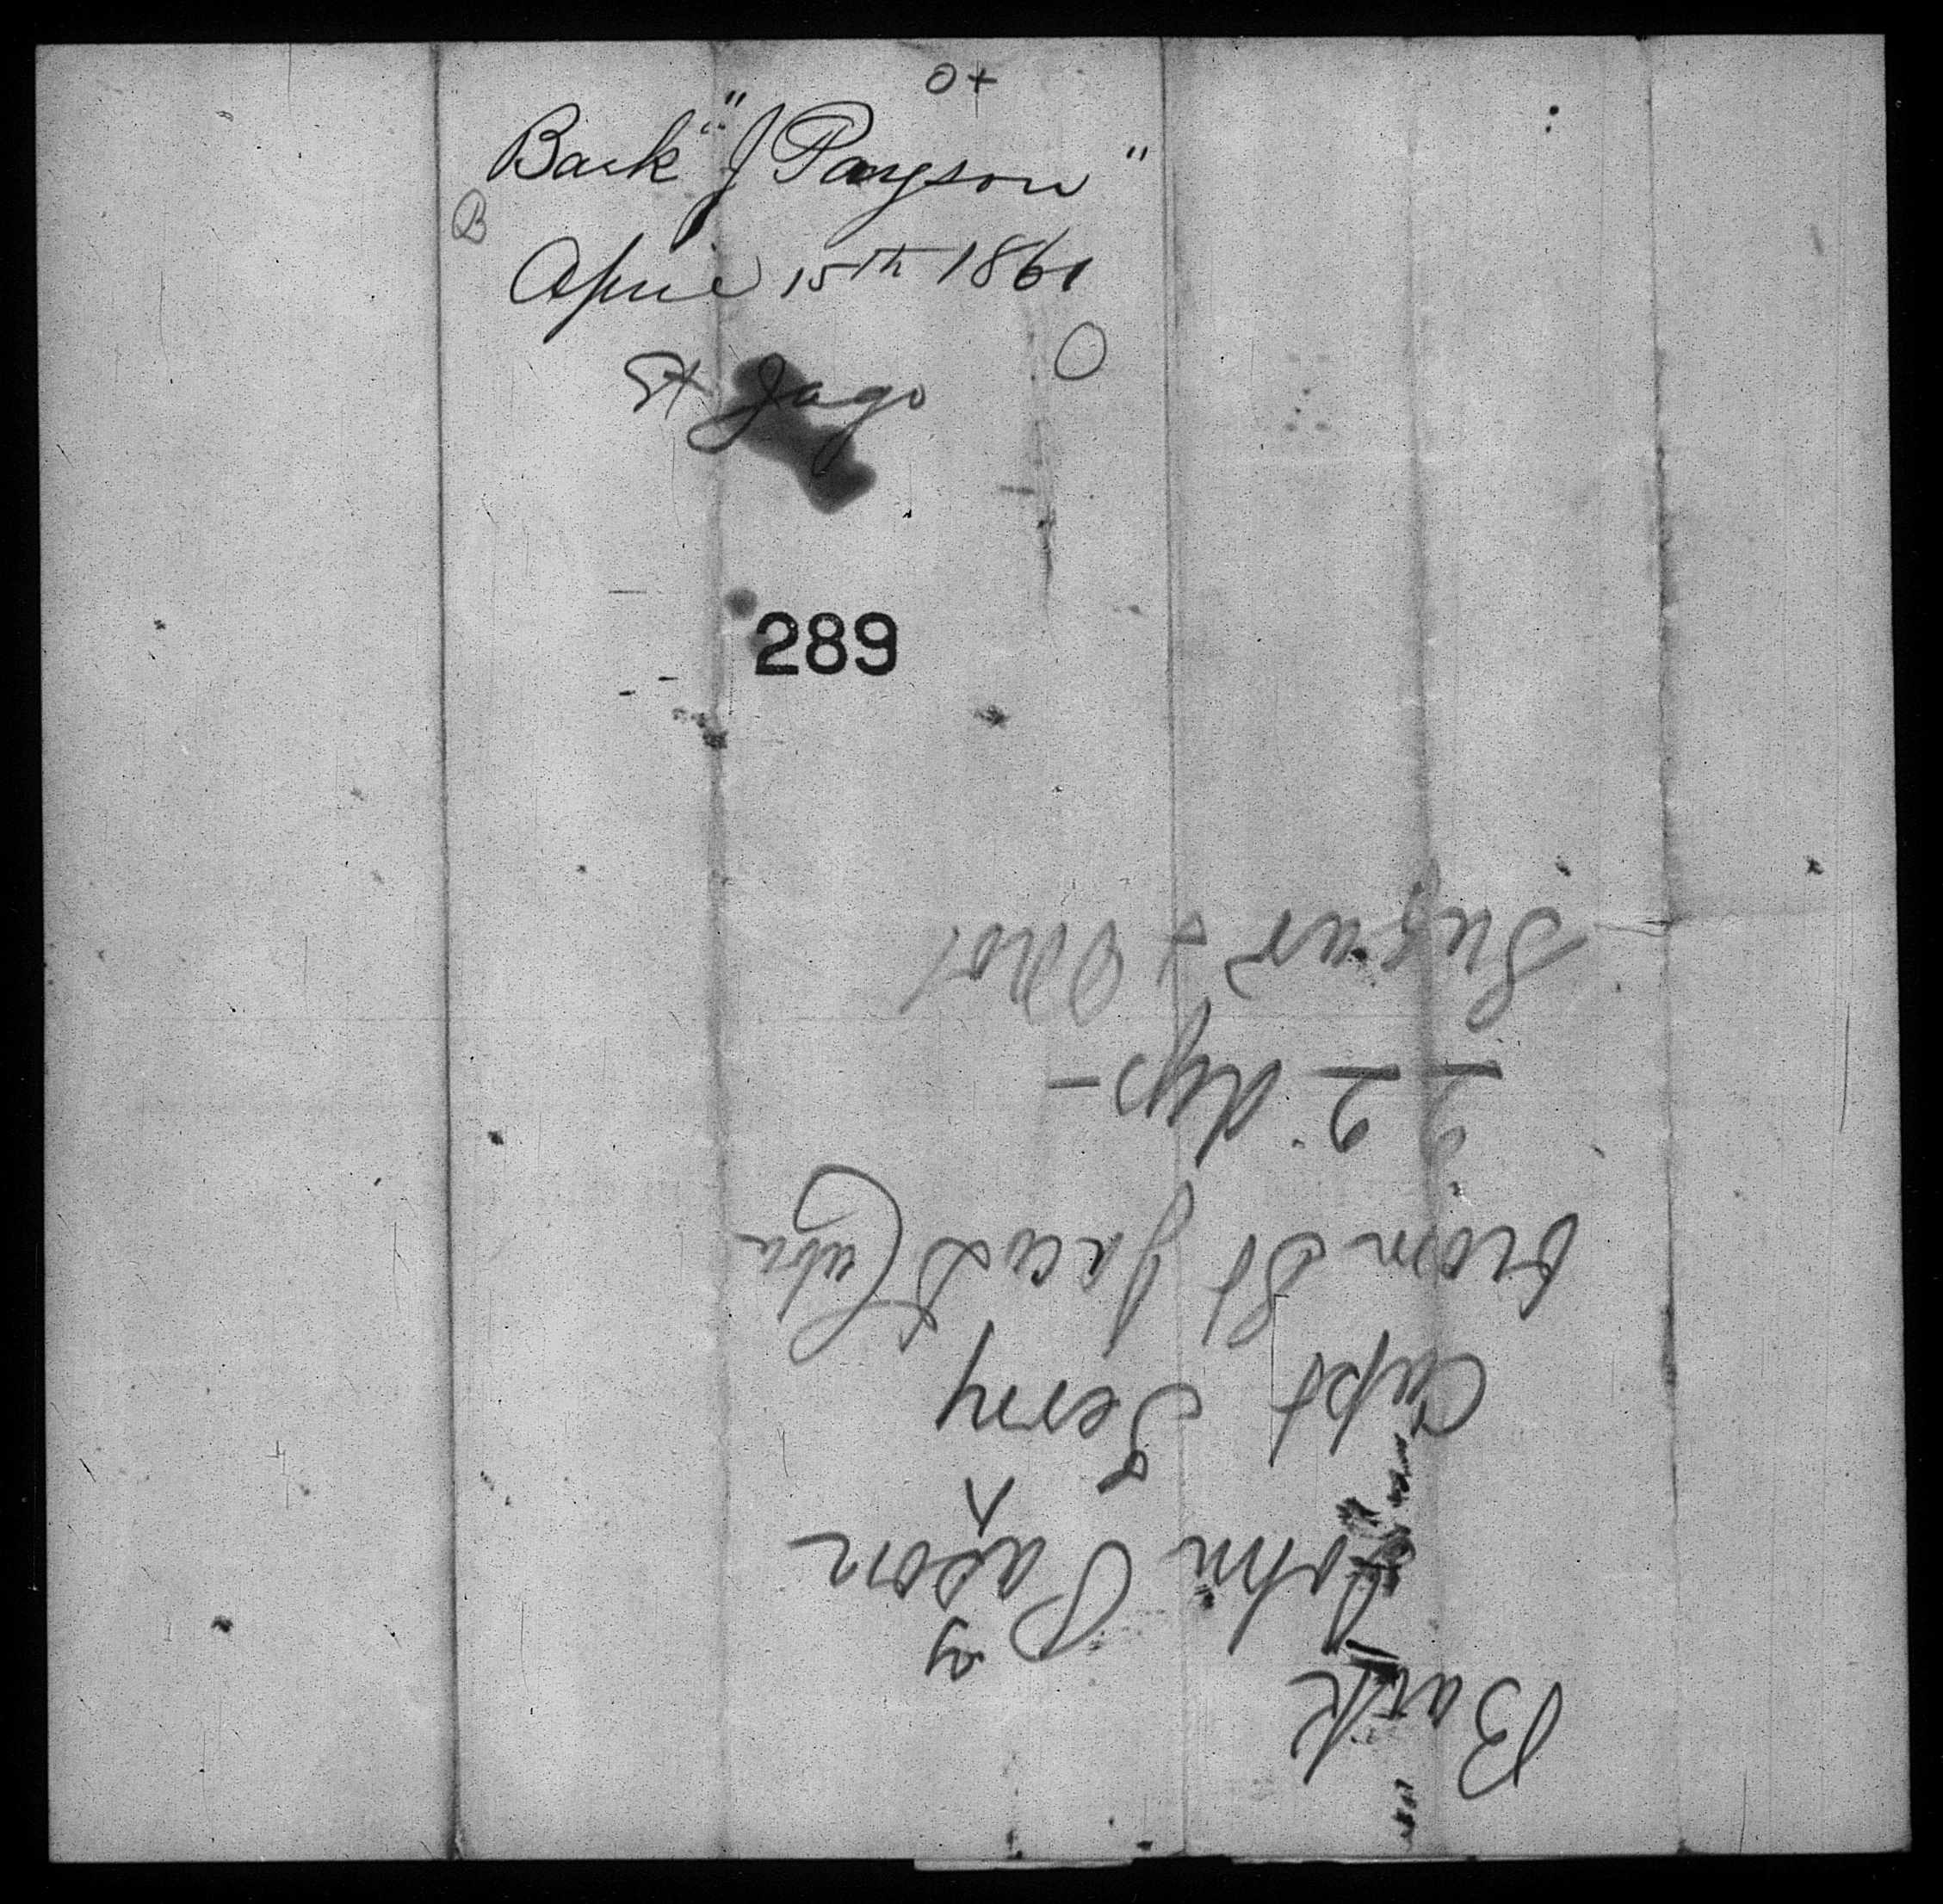 O+
Bark "J Payson"
B
April 15th 1861
O
St Jago
289
Bark
John Payson
Capt Terry
from St Jago d Cuba
22 dys -
Sugar &